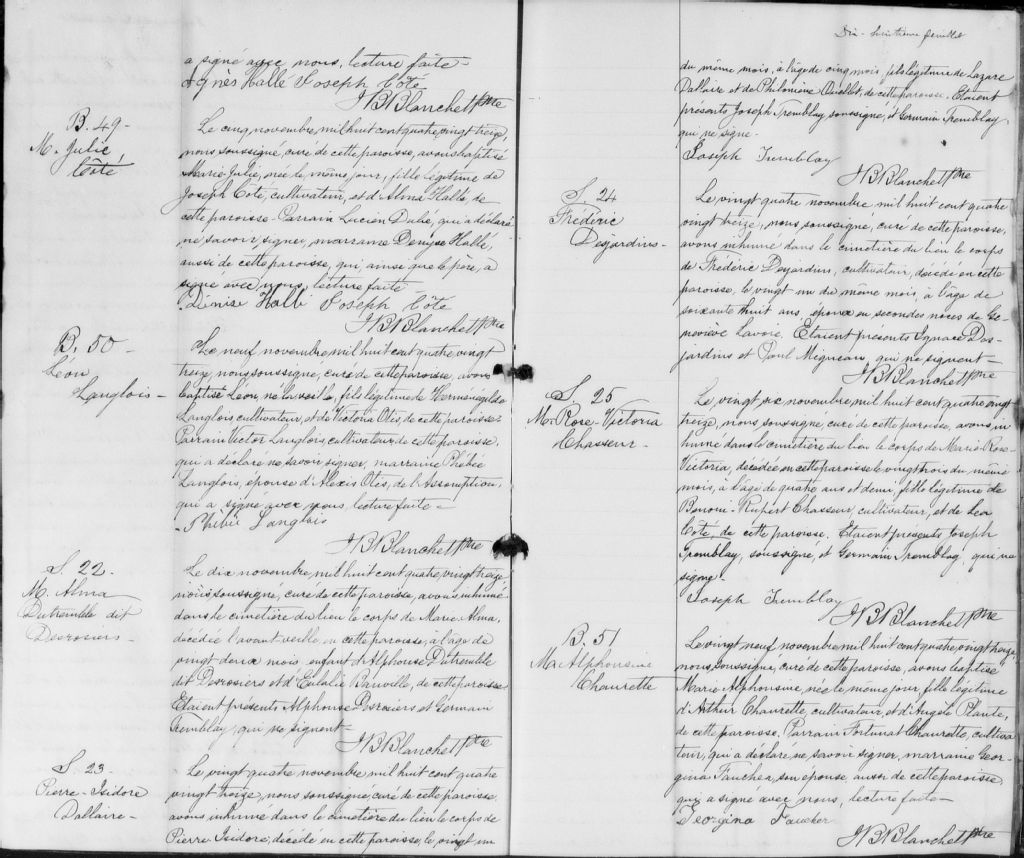 a signé avec nous, lecture faite -
Agnès Hallé Joseph Côté
JBBlanchet Ptre
B. 49 -
M. Julie
Côté
Le cinq novembre, mil huit cent quatre vingt treize,
nous soussigné, curé de cette paroisse, avons baptisé
Marie Julie, née le même jour, fille légitime de
Joseph Côté, cultivateur, et d'Alma Hallé, de
cette paroisse. Parrain Lucien Dubé, qui a déclaré
ne savoir signer, marraine Denyse Hallé,
aussi de cette paroisse, qui, ainsi que le père, a
signé avec nous, lecture faite -
Denise Hallé Joseph Côté
JBBlanchet Ptre
B. 50 -
Léon
Langlois -
Le neuf novembre, mil huit cent quatre vingt
treize, nous soussigné, curé de cette paroisse, avons
baptisé Léon, né la veille, fils légitime de Herménégilde
Langlois cultivateur, et de Victoria Otis, de cette paroisse -
Parrain Victor Langlois, cultivateur de cette paroisse,
qui a déclaré ne savoir signer, marraine Phébée
Langlois, épouse d'Alexis Otis, de l'Assomption,
qui a signé avec nous, lecture faite -
Phébée Langlois
JBBlanchet Ptre
S. 22 -
M. Alma
Dutremble dit
Desrosiers -
Le dix novembre, mil huit cent quatre vingt treize,
nous soussigné, curé de cette paroisse, avons inhumé
dans le cimetière du lieu le corps de Marie Alma,
décédée l'avant veille, en cette paroisse, à l'âge de
vingt deux mois, enfant d'Alphonse Dutremble
dit Desrosiers et d'Eulalie Banville, de cette paroisse
Etaient présents Alphonse Desrosiers et Germain
Tremblay, qui ne signent -
JBBlanchet Ptre
S. 23 -
Pierre-Isidore
Dallaire -
Le vingt quatre novembre mil huit cent quatre
vingt treize, nous soussigné, curé de cette paroisse,
avons inhumé dans le cimetière du lieu le corps de
Pierre Isidore, décédé en cette paroisse, le vingt un
Dix-huitième feuillet
du même mois, à l'âge de cinq mois, fils légitime de Lazare
Dallaire et de Philomène Ouellet, de cette paroisse. Etaient
présents Joseph Tremblay, soussigné, et Germain Tremblay
qui ne signe -
Joseph Tremblay
JBBlanchet Ptre
S. 24
Frédéric
Desjardins -
Le vingt quatre novembre mil huit cent quatre
vingt treize, nous soussigné, curé de cette paroisse,
avons inhumé dans le cimetière du lieu le corps
de Frédéric Desjardins, cultivateur, décédé en cette
paroisse, le vingt un du même mois, à l'âge de
soixante huit ans, époux en secondes noces de Ge-
neviève Lavoie. Etaient présents Ignace Des-
jardins et Paul Migneau, qui ne signent -
JBBlanchet Ptre
S. 25
M. Rose-Victoria
Chasseur -
Le vingt six novembre, mil huit cent quatre vingt
treize, nous soussigné, curé de cette paroisse, avons in
humé dans le cimetière du lieu le corps de Marie-Rose-
Victoria, décédée en cette paroisse le vingt trois du même
mois, à l'âge de quatre ans et demi, fille légitime de
Benoni-Rupert Chasseur, cultivateur, et de Léa
Côté, de cette paroisse. Etaient présents Joseph
Tremblay, soussigné, et Germain Tremblay, qui ne
signe -
Joseph Tremblay
JBBlanchet Ptre
B. 51
M. Alphonsine
Chaurette
Le vingt neuf novembre mil huit cent quatre vingt treize,
nous, soussigné, curé de cette paroisse, avons baptisé
Marie Alphonsine, née le même jour, fille légitime
d'Arthur Chaurette, cultivateur, et d'Angèle Plante,
de cette paroisse. Parrain Fortunat Chaurette, cultiva
teur, qui a déclaré ne savoir signer, marraine Geor-
gina Faucher, son épouse, aussi de cette paroisse,
qui a signé avec nous, lecture faite -
Georgina Faucher
JBBlanchet Ptre